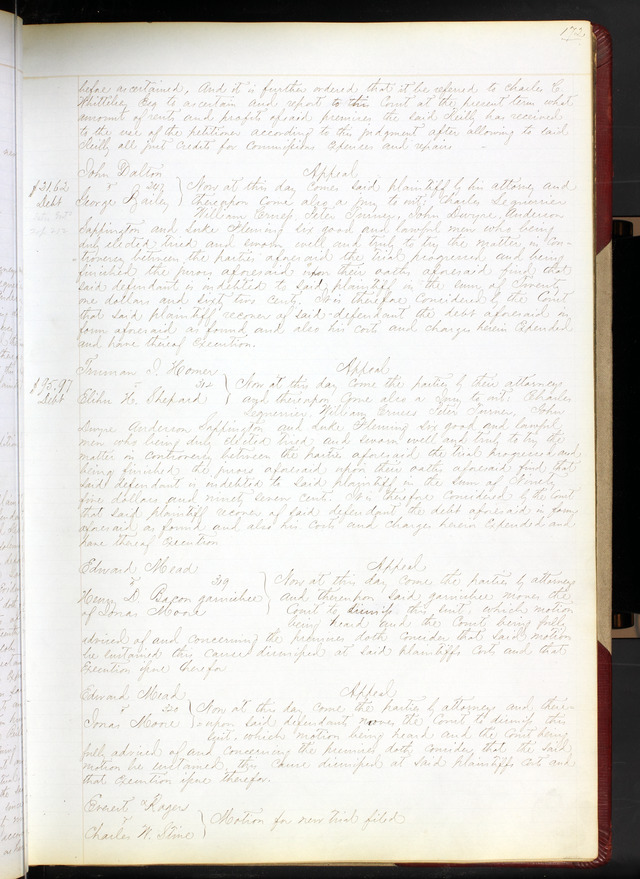 172
before ascertained, And it is further ordered that it be referred to Charles C.
Whittlesey Esq to ascertain and report to this Court at the present term what
amount of rents and profits of said premises the said Reilly has received
to the use of the petitioner according to the judgment after allowing to said
Reilly all just credits for commissions expenses and repairs
John Dalton Appeal
$21.62 v 207 } Now at this day comes said plaintiff by his attorney and
Debt George Bailey thereupon come also a jury to wit; Charles Leguerrier
William Ernst, Peter Turney, John Dwyre, Anderson
Sappington and Luke Fleming six good and lawful men who being
duly elected tried and sworn well and truly to try the matter in con-
troversy between the parties aforesaid the trial progressed and being
finished the jurors aforesaid upon their oaths aforesaid find that
said defendant is indebted to said plaintiff in the sum of Twenty
one dollars and sixty two cents. It is therefore considered by the Court
that said plaintiff recover of said defendant the debt aforesaid in
form aforesaid as found and also his costs and charges herein expended
and have thereof execution.
Truman I. Homer Appeal
$95.97 v 314 } Now at this day come the parties by their attorneys
Debt Elihu H. Shepard and thereupon come also a jury to wit; Charles
Leguerrier, William Ernst Peter Turner, John
Dwyre Anderson Sappington and Luke Fleming six good and lawful
men who being duly elected tried and sworn well and truly to try the
matter in controversy between the parties aforesaid the trial progressed and
being finished the jurors aforesaid upon their oaths aforesaid find that
said defendant is indebted to said plaintiff in the sum of Ninety
five dollars and ninety seven cents. It is therefore considered by the Court
that said plaintiff recover of said defendant the debt aforesaid in form
aforesaid as found and also his costs and charges herein expended and
have thereof execution
Edward Mead Appeal
v 319 } Now at this day come the parties by attorneys
Henry D. Bacon garnishee and thereupon said garnishee moves the
of Jonas Moore Court to dismiss this suit, which motion
being heard and the Court being fully
advised of and concerning the premises doth consider that said motion
be sustained this cause dismissed at said plaintiffs costs and that
execution issue therefor
Edward Mead Appeal
v 320 } Now at this day come the parties by attorneys and there-
Jonas Moore upon said defendant moves the Court to dismiss this
suit, which motion being heard and the Court being
fully advised of and concerning the premises doth consider that the said
motion be sustained, this cause dismissed at said plaintiffs costs and
that execution issue therefor.
Everet Rogers
v } Motion for new trial filed
Charles W. Stine